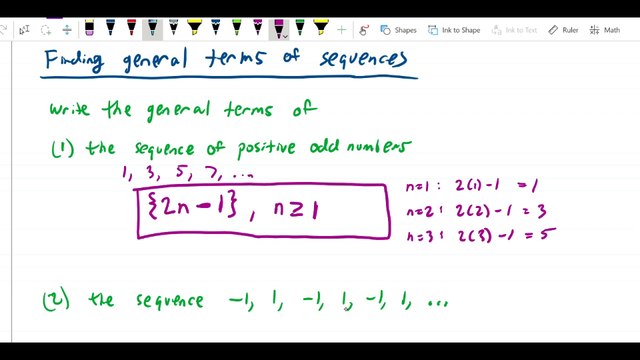 Shapes
Ink to Shape
Ink to Text
Ruler
Math
Finding general terms of sequences
Write the general terms of
(1) the sequence of positive odd numbers
1, 3, 5, 7, ...
{2n-1}, n≥1
n=1: 2(1)-1 = 1
n=2: 2(2)-1 = 3
n=3: 2(3)-1 = 5
(2) the sequence -1, 1, -1, 1, -1, 1, ...